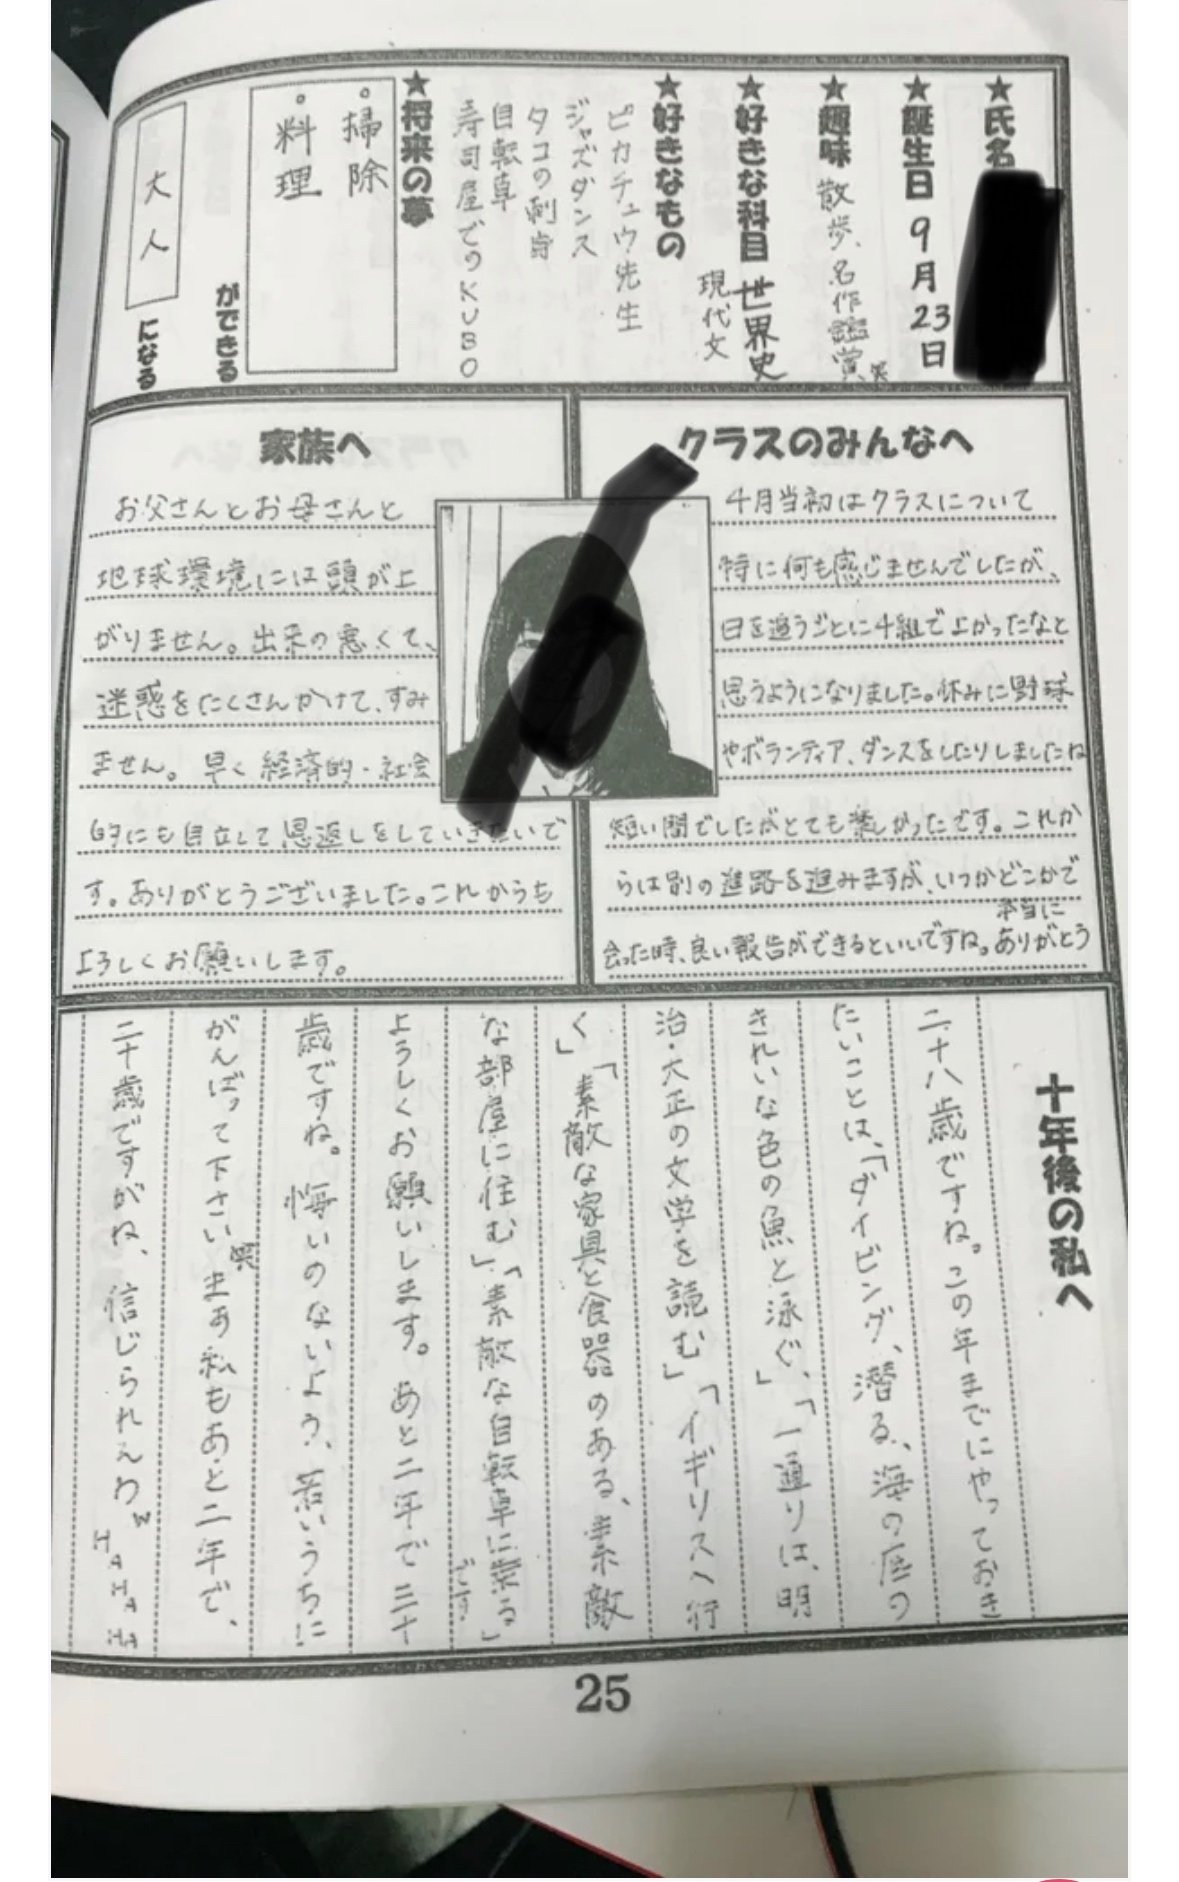 ★氏名
★誕生日 9月23日
★趣味 散歩、名作鑑賞 笑
★好きな科目 世界史
現代文
★好きなもの
ピカチュウ先生
ジャズダンス
タコの刺身
自転車
寿司屋でのKUBO
★将来の夢
・掃除
・料理
ができる
大人
になる
クラスのみんなへ
4月当初はクラスについて
特に何も感じませんでしたが、
日を追うごとに4組で上かったなと
思うようになりました。休みに野球
やボランティア、ダンスをしたりしましたね
短い間でしたがとても楽しかったです。これか
らは別の進路を進みますが、いつかどこかで
会った時、良い報告ができるといいですね。本当にありがとう
家族へ
お父さんとお母さんと
地球環境には頭が上
がりません。出来の悪くて、
迷惑をたくさんかけて、すみ
ません。早く経済的・社会
的にも自立して恩返しをしていきたいで
す。ありがとうございました。これからうち
よろしくお願いします。
十年後の私へ
二十八歳ですね。この年までにやっておき
たいことは、「ダイビング、潜る、海の底の
きれいな色の魚と泳ぐ、」「一通りは、明
治・大正の文学を読む」「イギリスへ行
く」「素敵な家具と食器のある、素敵
な部屋に住む」「素敵な自転車に乗る」です
ようしくお願いします。あと二年で三十
歳ですね。悔いのないよう、若いうちに
がんばって下さい笑 まあ私もあと二年で、
二十歳ですがね、信じられえわw HAHAHA
25